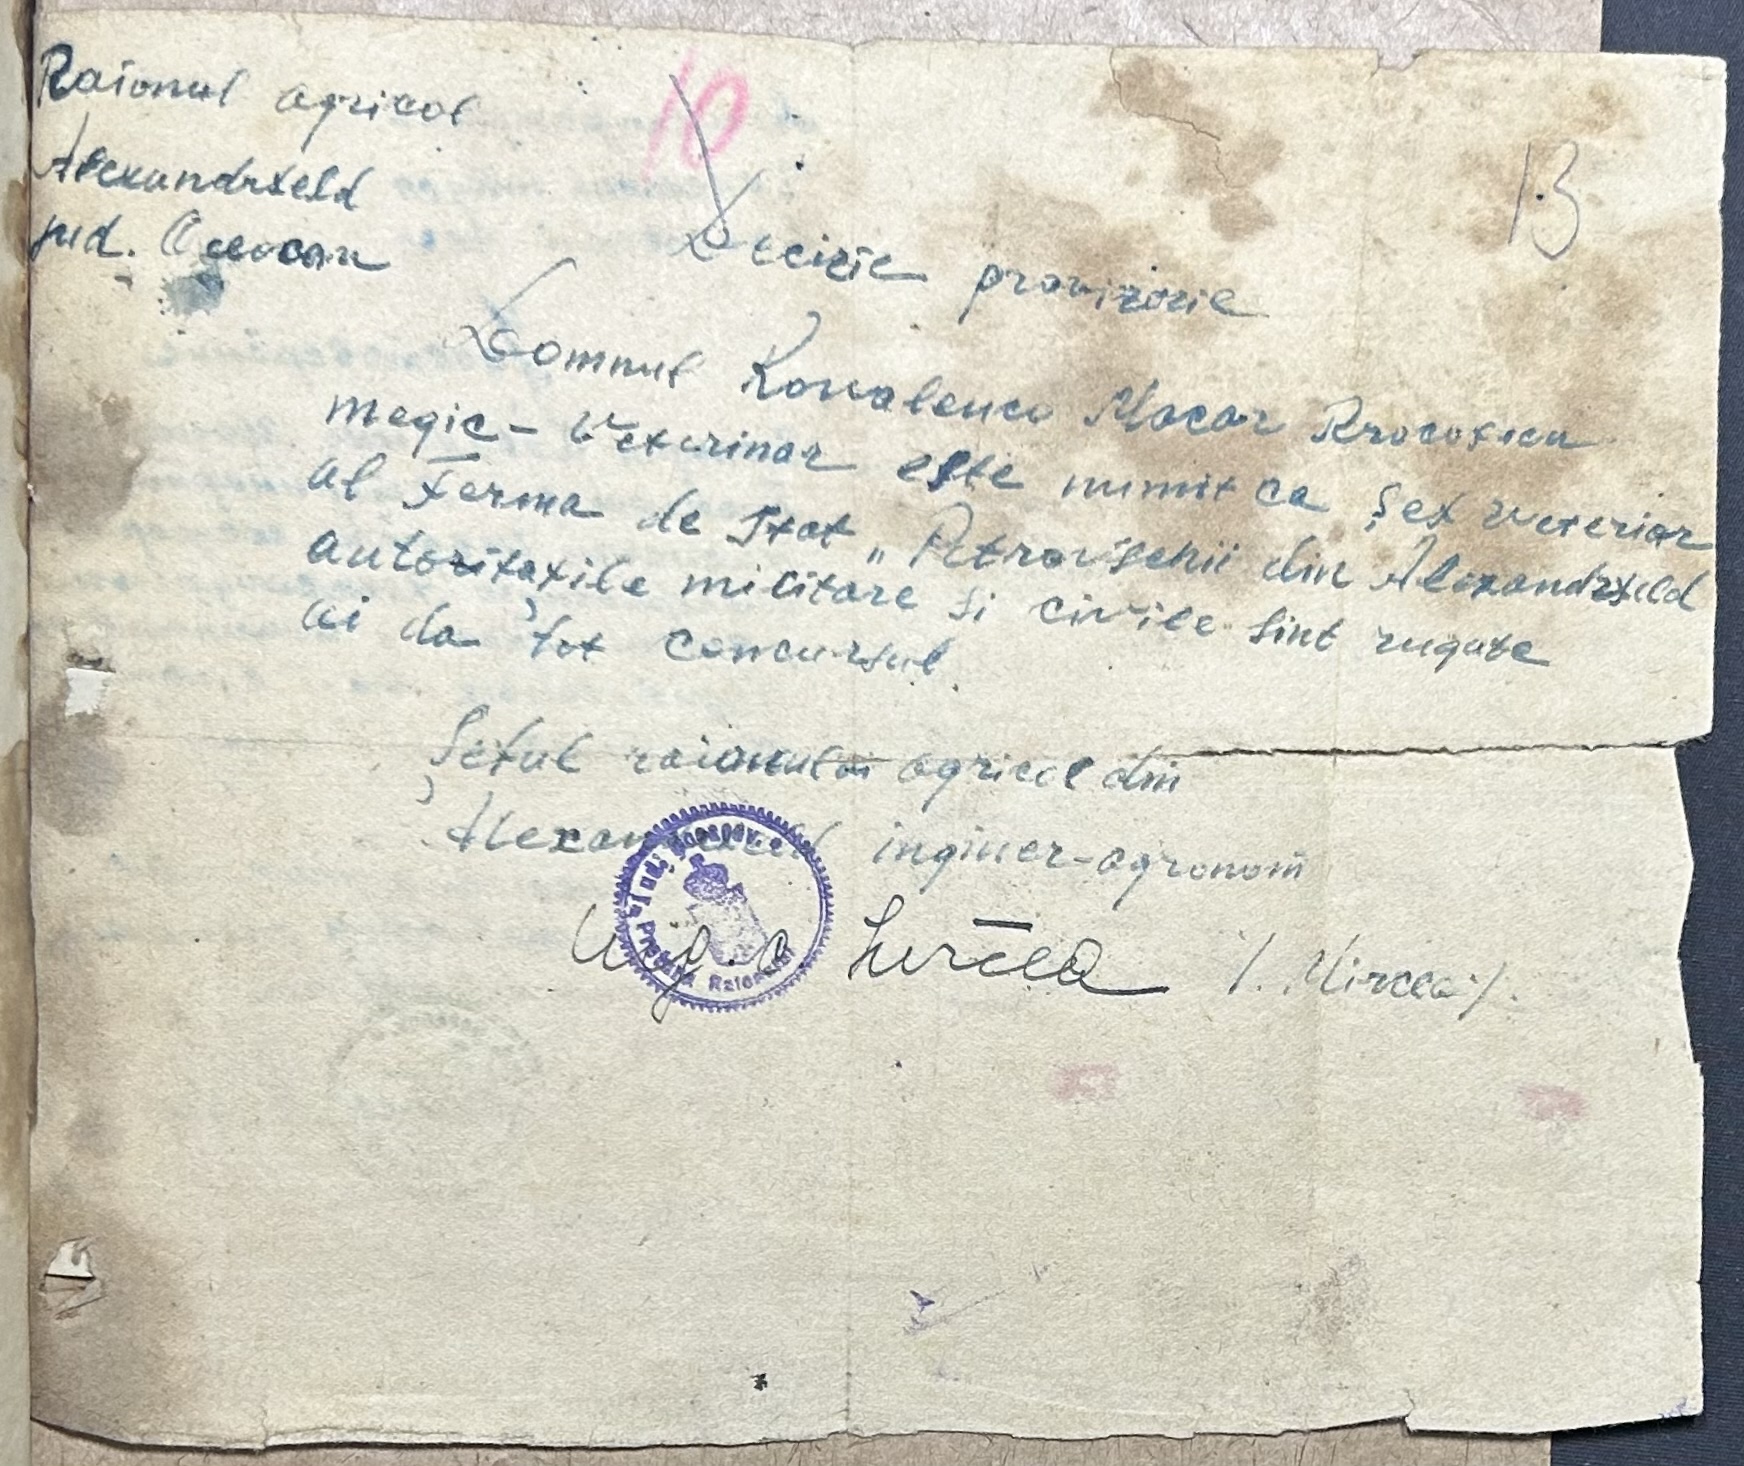 Raionul agricol
10
13
Alexandrfeld
jud. Oceacov
Decizie provizorie
Domnul Kowalenco Macar Procofieu
megic-Veterinar este numit ca șef veteriar
al Ferma de Stat „Petrovschii din Alexandrfeld
autoritațile militare și civile sint rugate
ai da tot concursul.
Șeful raionului agricol din
Alexandrfeld inginer-agronom
Mircea /. Mircea /.
Pretura Raionului